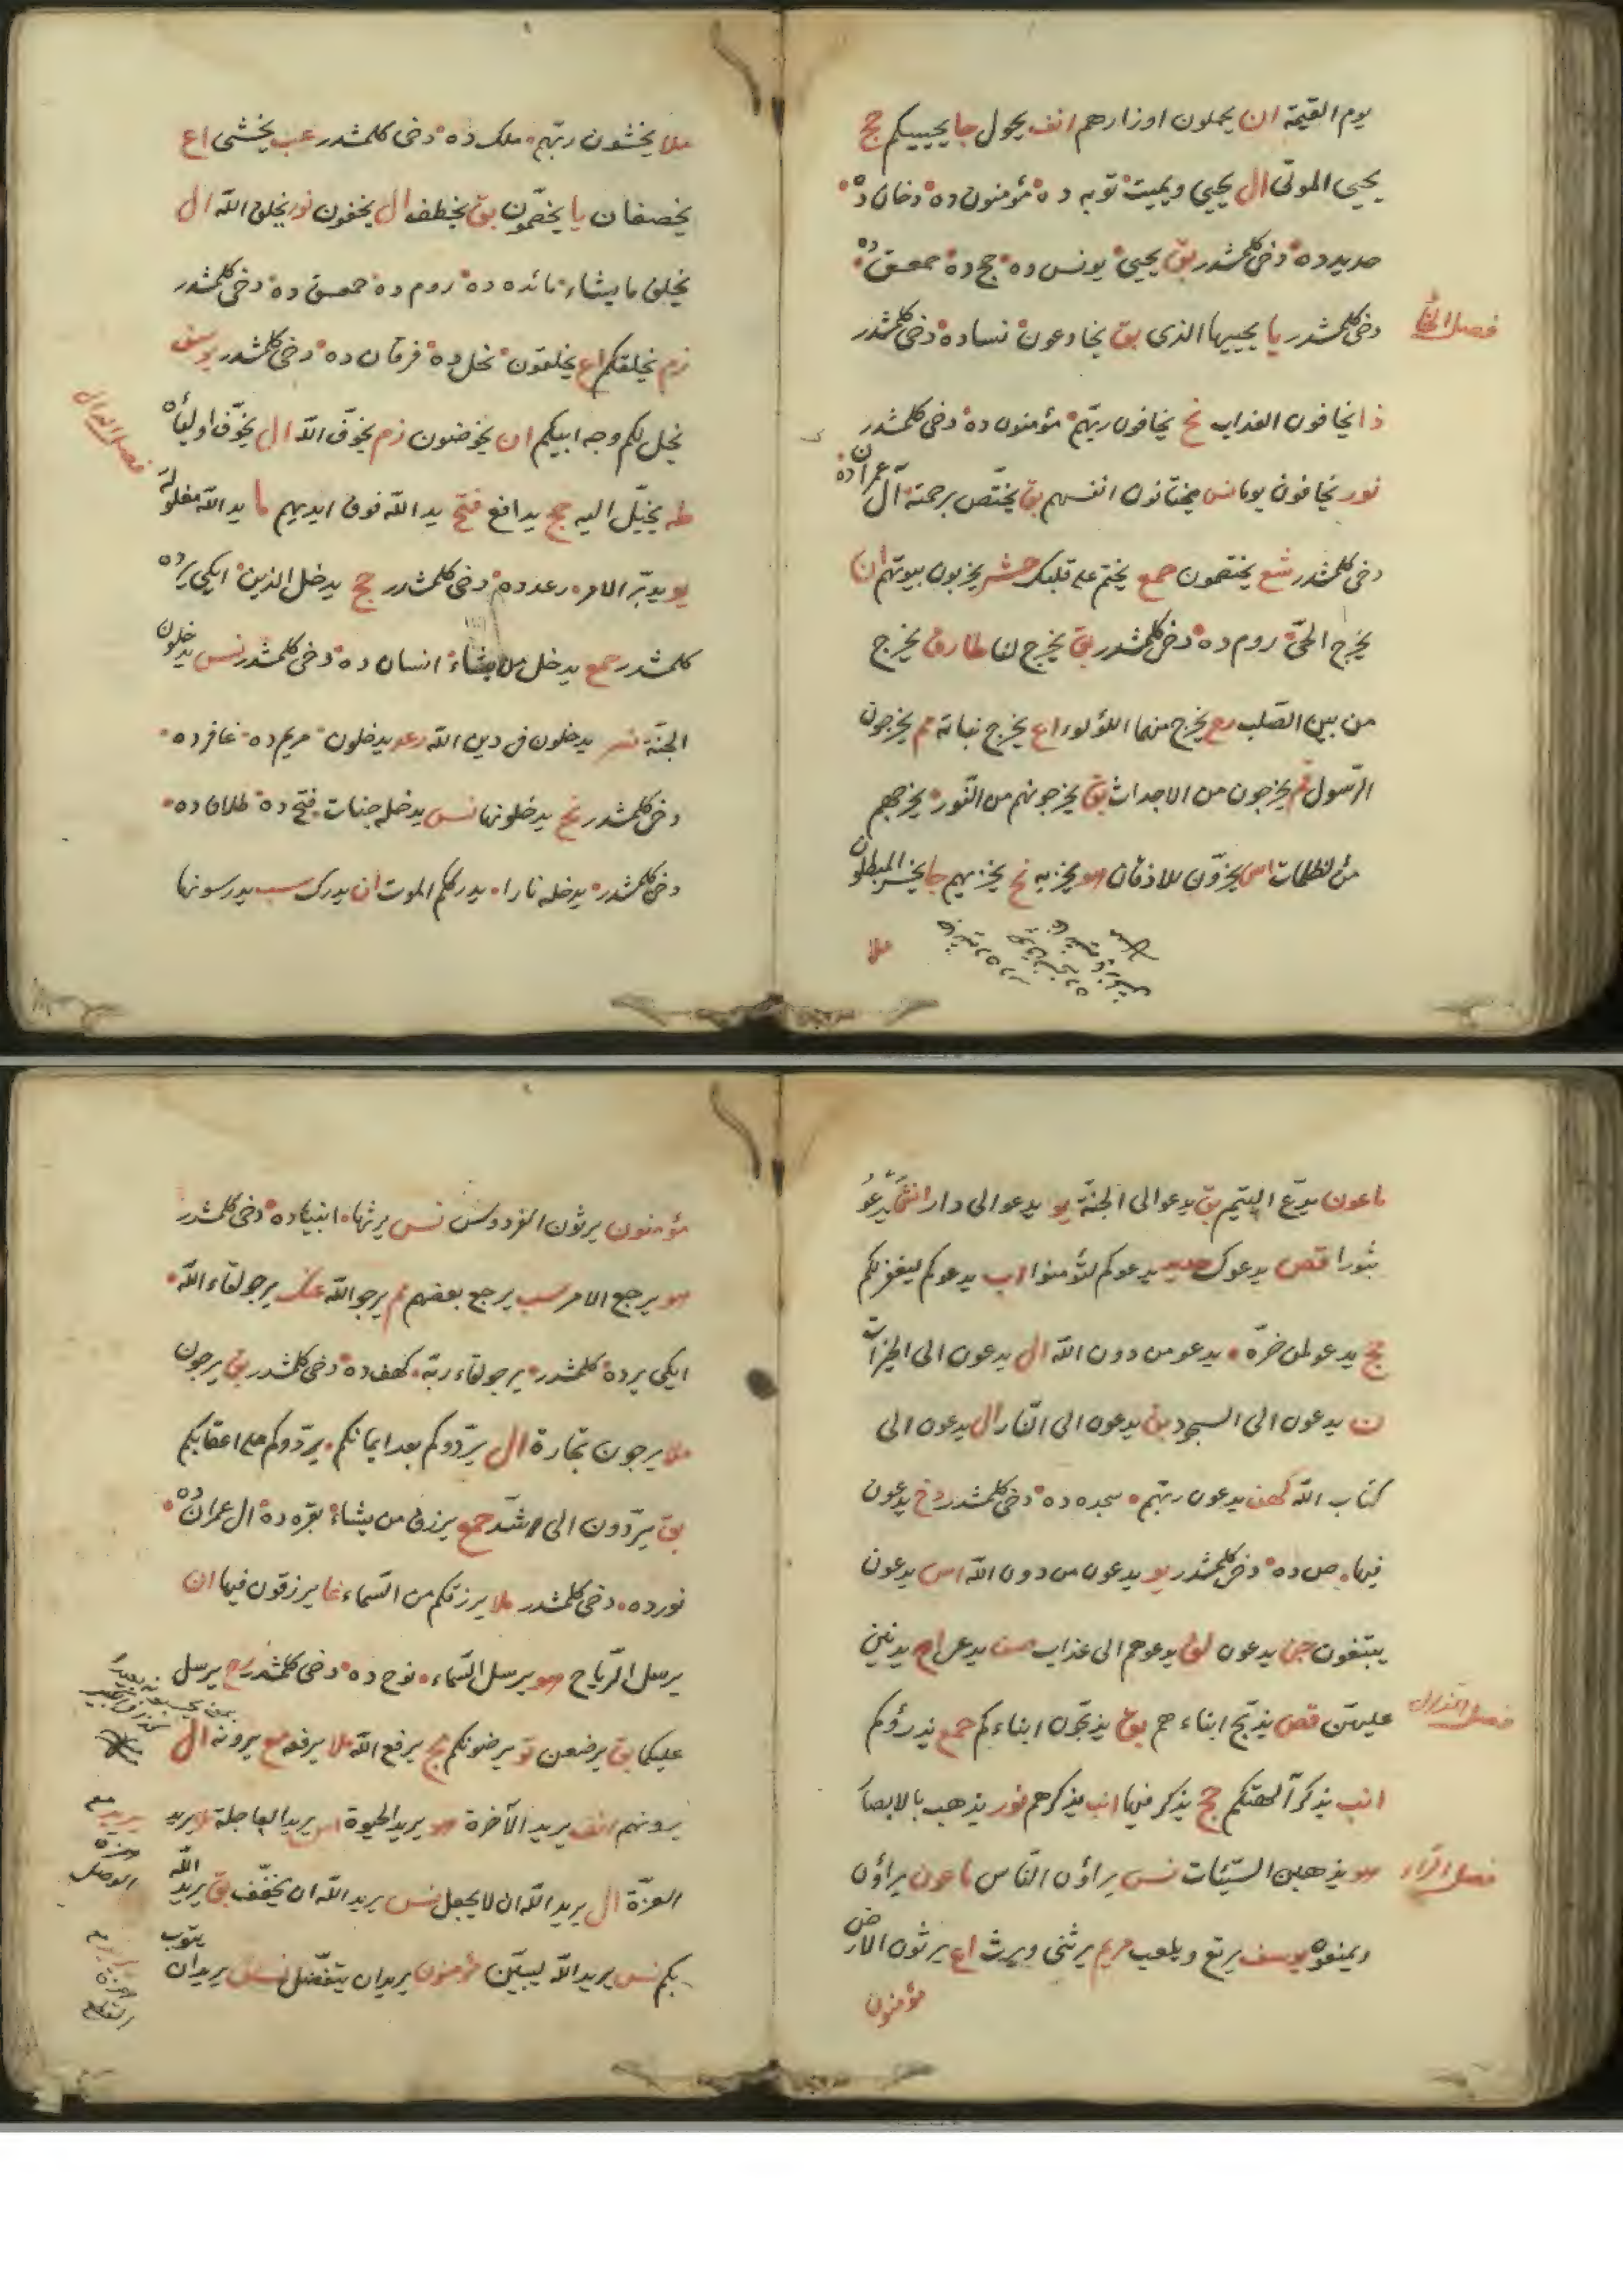 يوم القيمة ان يحملون اوزارهم انف يحول جا يحييكم حج
يحيى الموتى ال يحيي ويميت توبه ده مؤمنون ده دخان ده
حديد ده دخى كلمشدر بق يحيى يونس ده حج ده حمعسق ده
فصل الخا
دخى كلمشدر يا يحييها الذى بق يخادعون نسا ده دخى كلمشدر
ذا يخافون العذاب نح يخافون ربهم مؤمنون ده دخى كلمشدر
نور يخافون يوما نس يختانون انفسهم بق يختص برحمته آل عمران ده
دخى كلمشدر شع يختصمون حمع يختم على قلبك حشر يخربون بيوتهم ان
يخرج الحى روم ده دخى كلمشدر بق يخرج لنا طارق يخرج
من بين الصلب رح يخرج منهما اللؤلوء اع يخرج نباته مم يخرجون
الرسول قم يخرجون من الاجداث بق يخرجونهم من النور يخرجهم
من الظلمات اس يخرون للاذقان هو يخزيه نح يخزيهم جا يخسر المبطلون
ملا
ملا يخشون ربهم ملك ده دخى كلمشدر عب يخشى اع
يخصفان يا يخصمون بق يخطف ال يخفون نور يخلق الله ال
يخلق ما يشاء مائده ده روم ده حمعسق ده دخى كلمشدر
زم يخلقكم اع يخلقون نحل ده فرقان ده دخى كلمشدر يوسف
فصل الدال
يخل لكم وجه ابيكم ان يخوضون زم يخوف الله ال يخوف اولياءه
طه يخيل اليه حج يدافع فتح يد الله فوق ايديهم ما يد الله مغلولة
يو يدبر الامر رعد ده دخى كلمشدر حج يدخل الذين ايكى يرده
كلمشدر حمع يدخل من يشاء انسان ده دخى كلمشدر نس يدخلون
الجنة نصر يدخلون فى دين الله رعد يدخلون مريم ده غافر ده
دخى كلمشدر نح يدخلونها نس يدخله جنات فتح ده طلاق ده
دخى كلمشدر يدخله نارا يدرككم الموت ان يدرك سب يدرسونها
ماعون يدع اليتيم بق يدعوا الى الجنة يو يدعوا الى دار انش يدعو
ثبورا قص يدعوك حديد يدعوكم لتؤمنوا اب يدعوكم ليغفر لكم
حج يدعو لمن ضره يدعو من دون الله ال يدعون الى الخيرات
ن يدعون الى السجود بق يدعون الى النار ال يدعون الى
كتاب الله كهف يدعون ربهم سجده ده دخى كلمشدر دخ يدعون
فيها ص ده دخى كلمشدر يو يدعون من دون الله اس يدعون
يبتغون جن يدعوه لق يدعوهم الى عذاب يدنين
فصل الذال
عليهن قص يذبح ابناءهم بق يذبحون ابناءكم حمع يذرؤكم
انب يذكر آلهتكم حج يذكر فيها انب يذكرهم نور يذهب بالابصار
فصل الراء
هو يذهبن السيئات نس يراؤن الناس ماعون يراؤن
ويمنعون يوسف يرتع ويلعب مريم يرثنى ويرث اع يرثون الارض
مؤمنون
مؤمنون يرثون الفردوس نس يرثها انبيا ده دخى كلمشدر
هو يرجع الامر سب يرجع بعضهم مم يرجو الله عنك يرجو لقاء الله
ايكى يرده كلمشدر يرجو لقاء ربه كهف ده دخى كلمشدر بق يرجون
ملا يرجون تجارة ال يردوكم بعد ايمانكم يردوكم على اعقابكم
بق يردون الى اشد حمع يرزق من يشاء بقره ده ال عمران ده
نور ده دخى كلمشدر ملا يرزقكم من السماء غا يرزقون فيها ان
يرسل الرياح هو يرسل السماء نوح ده دخى كلمشدر رح يرسل
عليكما بق يرضعن تو يرضونكم حج يرفع الله ملا يرفعه مع يرونه ال
يرونهم انف يريد الآخرة هو يريد الحيوة اس يريد العاجلة ملا يريد
العزة ال يريد الله ان لا يجعل نس يريد الله ان يخفف بق يريد الله
بكم نس يريد الله ليبين مؤمنون يريد ان يتفضل نس يريد ان يتوب
همزه
الوصل
همزة
القطع